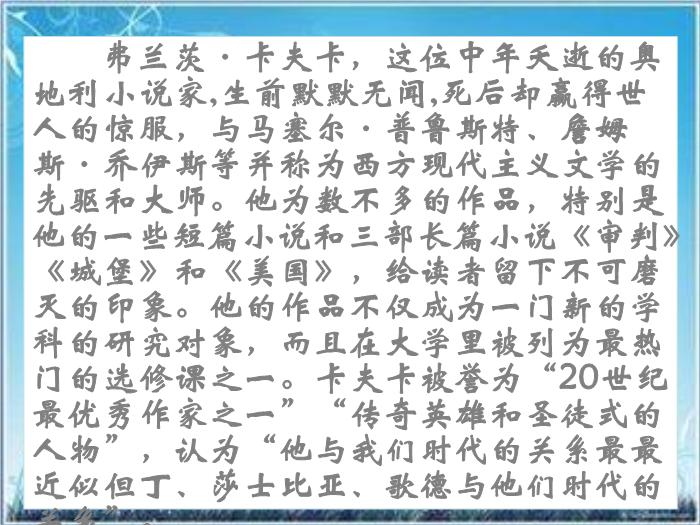 弗兰茨·卡夫卡，这位中年夭逝的奥
地利小说家,生前默默无闻,死后却赢得世
人的惊服，与马塞尔·普鲁斯特、詹姆
斯·乔伊斯等并称为西方现代主义文学的
先驱和大师。他为数不多的作品，特别是
他的一些短篇小说和三部长篇小说《审判》
《城堡》和《美国》，给读者留下不可磨
灭的印象。他的作品不仅成为一门新的学
科的研究对象，而且在大学里被列为最热
门的选修课之一。卡夫卡被誉为“20世纪
最优秀作家之一”“传奇英雄和圣徒式的
人物”，认为“他与我们时代的关系最最
近似但丁、莎士比亚、歌德与他们时代的